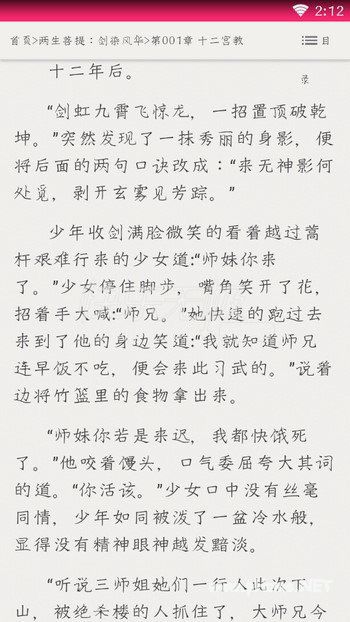 2:12
首页>两生菩提：剑染风华>第001章 十二宫教
目
录
十二年后。
“剑虹九霄飞惊龙，一招置顶破乾
坤。”突然发现了一抹秀丽的身影，便
将后面的两句口诀改成：“来无神影何
处觅，剥开玄雾见芳踪。”
少年收剑满脸微笑的看着越过蒿
杆艰难行来的少女道:“师妹你来
了。”少女停住脚步，嘴角笑开了花，
招着手大喊:“师兄。”她快速的跑过去
来到了他的身边笑道:“我就知道师兄
连早饭不吃，便会来此习武的。”说着
边将竹篮里的食物拿出来。
“师妹你若是来迟，我都快饿死
了。”他咬着馒头，口气委屈夸大其词
的道。“你活该。”少女口中没有丝毫
同情，少年如同被泼了一盆冷水般，
显得没有精神眼神越发黯淡。
“听说三师姐她们一行人此次下
山，被绝杀楼的人抓住了，大师兄今